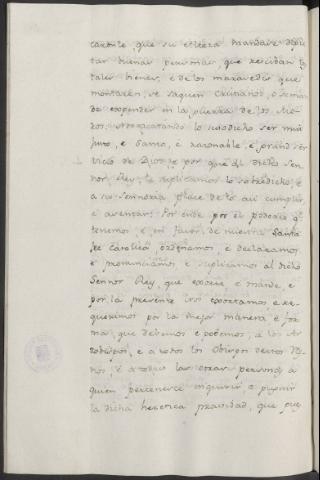 carónle, que su alteza mandase dipu
tar buenas personas, que resciban los
tales bienes, é de los maravedis que
montaren, se saquen cristianos, o se man
de expender en la guerra de los Mo
ros. Nos acatando lo susodicho ser muy
justo, e santo, e razonable, é grand ser
vicio de Dios, é por que al dicho Sen
nor Rey, le suplicamos lo sobredicho, é
a su sennoria place de lo asi cumplir,
e asentar: Por ende por el poderio q.
tenemos, e en favor de nuestra Santa
fe Catolica, ordenamos, e declaramos
e pronunciamos, e suplicamos al dicho
Sennor Rey, que exorte, é mande, e
por la presente nos exortamos é re-
querimos por la mejor manera é for
ma, que debemos e podemos, a los Ar
zobispos, e a todos los Obispos destos Re-
nos, é a todas las otras personas a
quien pertenesce inquirir é punir
la dicha heretica pravidad, que pues